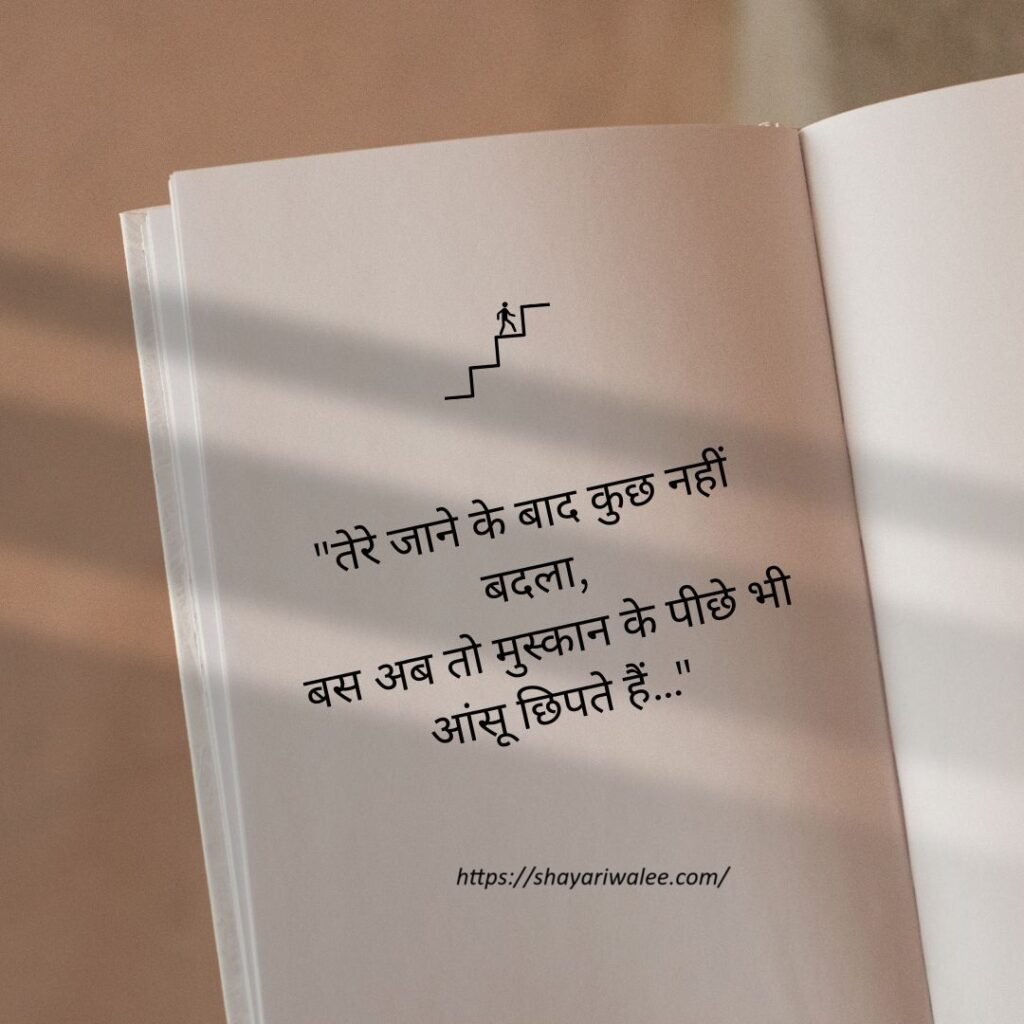 "तेरे जाने के बाद कुछ नहीं
बदला,
बस अब तो मुस्कान के पीछे भी
आंसू छिपते हैं..."
https://shayariwalee.com/